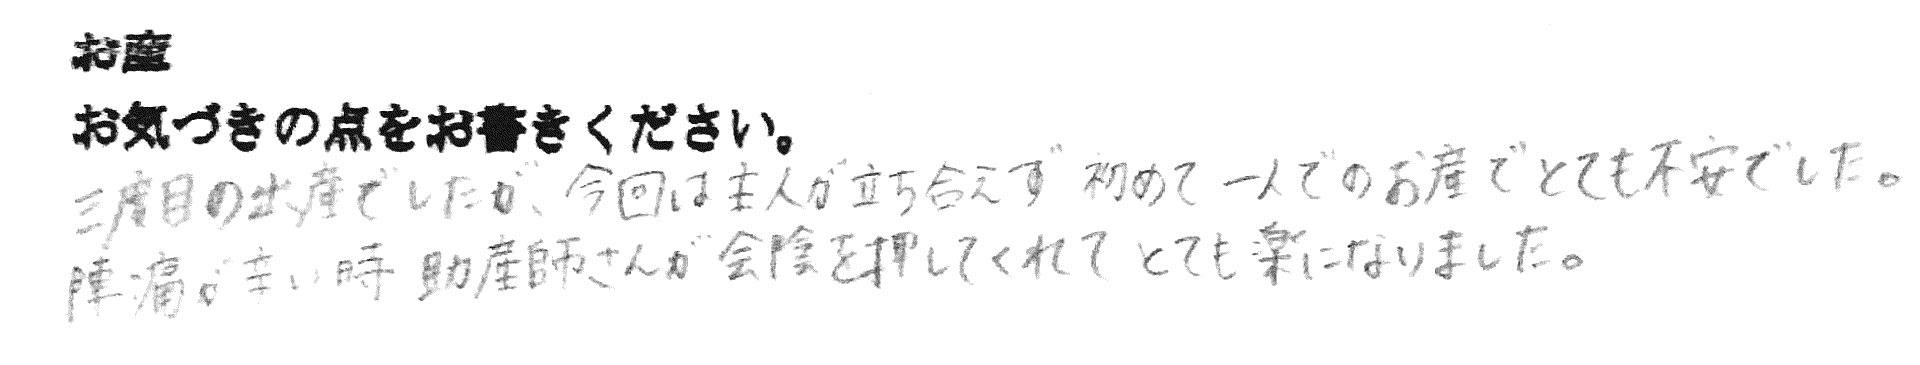 お産
お気づきの点をお書きください。
三度目の出産でしたが、今回は主人が立ち合えず 初めて一人でのお産でとても不安でした。
陣痛が辛い時 助産師さんが会陰を押してくれて とても楽になりました。